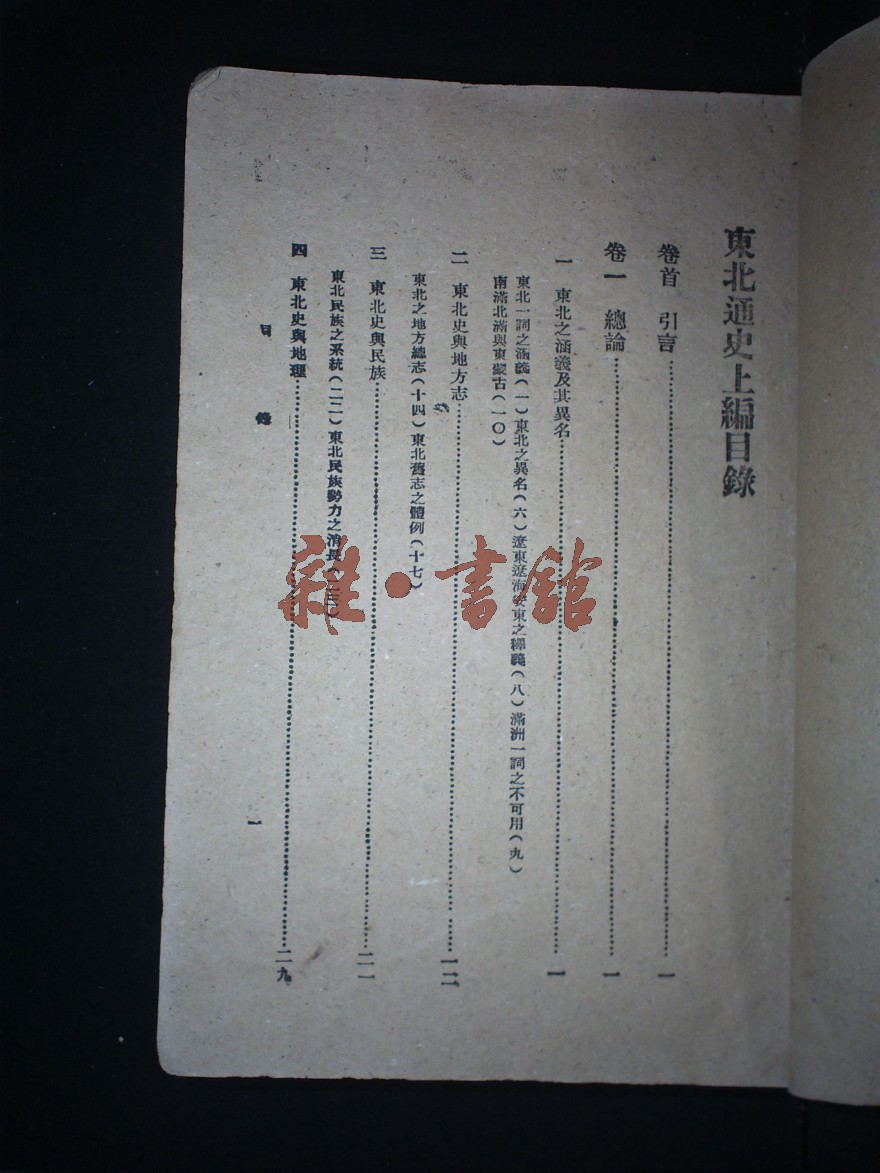 東北通史上編目錄
卷首 引言……一
卷一 總論……一
一 東北之涵義及其異名……一
東北一詞之涵義(一)東北之異名(六)遼東遼海安東之釋義(八)滿洲一詞之不可用(九)
南滿北滿與東蒙古(一〇)
二 東北史與地方志……一二
東北之地方總志(十四)東北舊志之體例(十七)
三 東北史與民族……二一
東北民族之系統(二二)東北民族勢力之消長
四 東北史與地理……二九
目錄
一
雜·書館